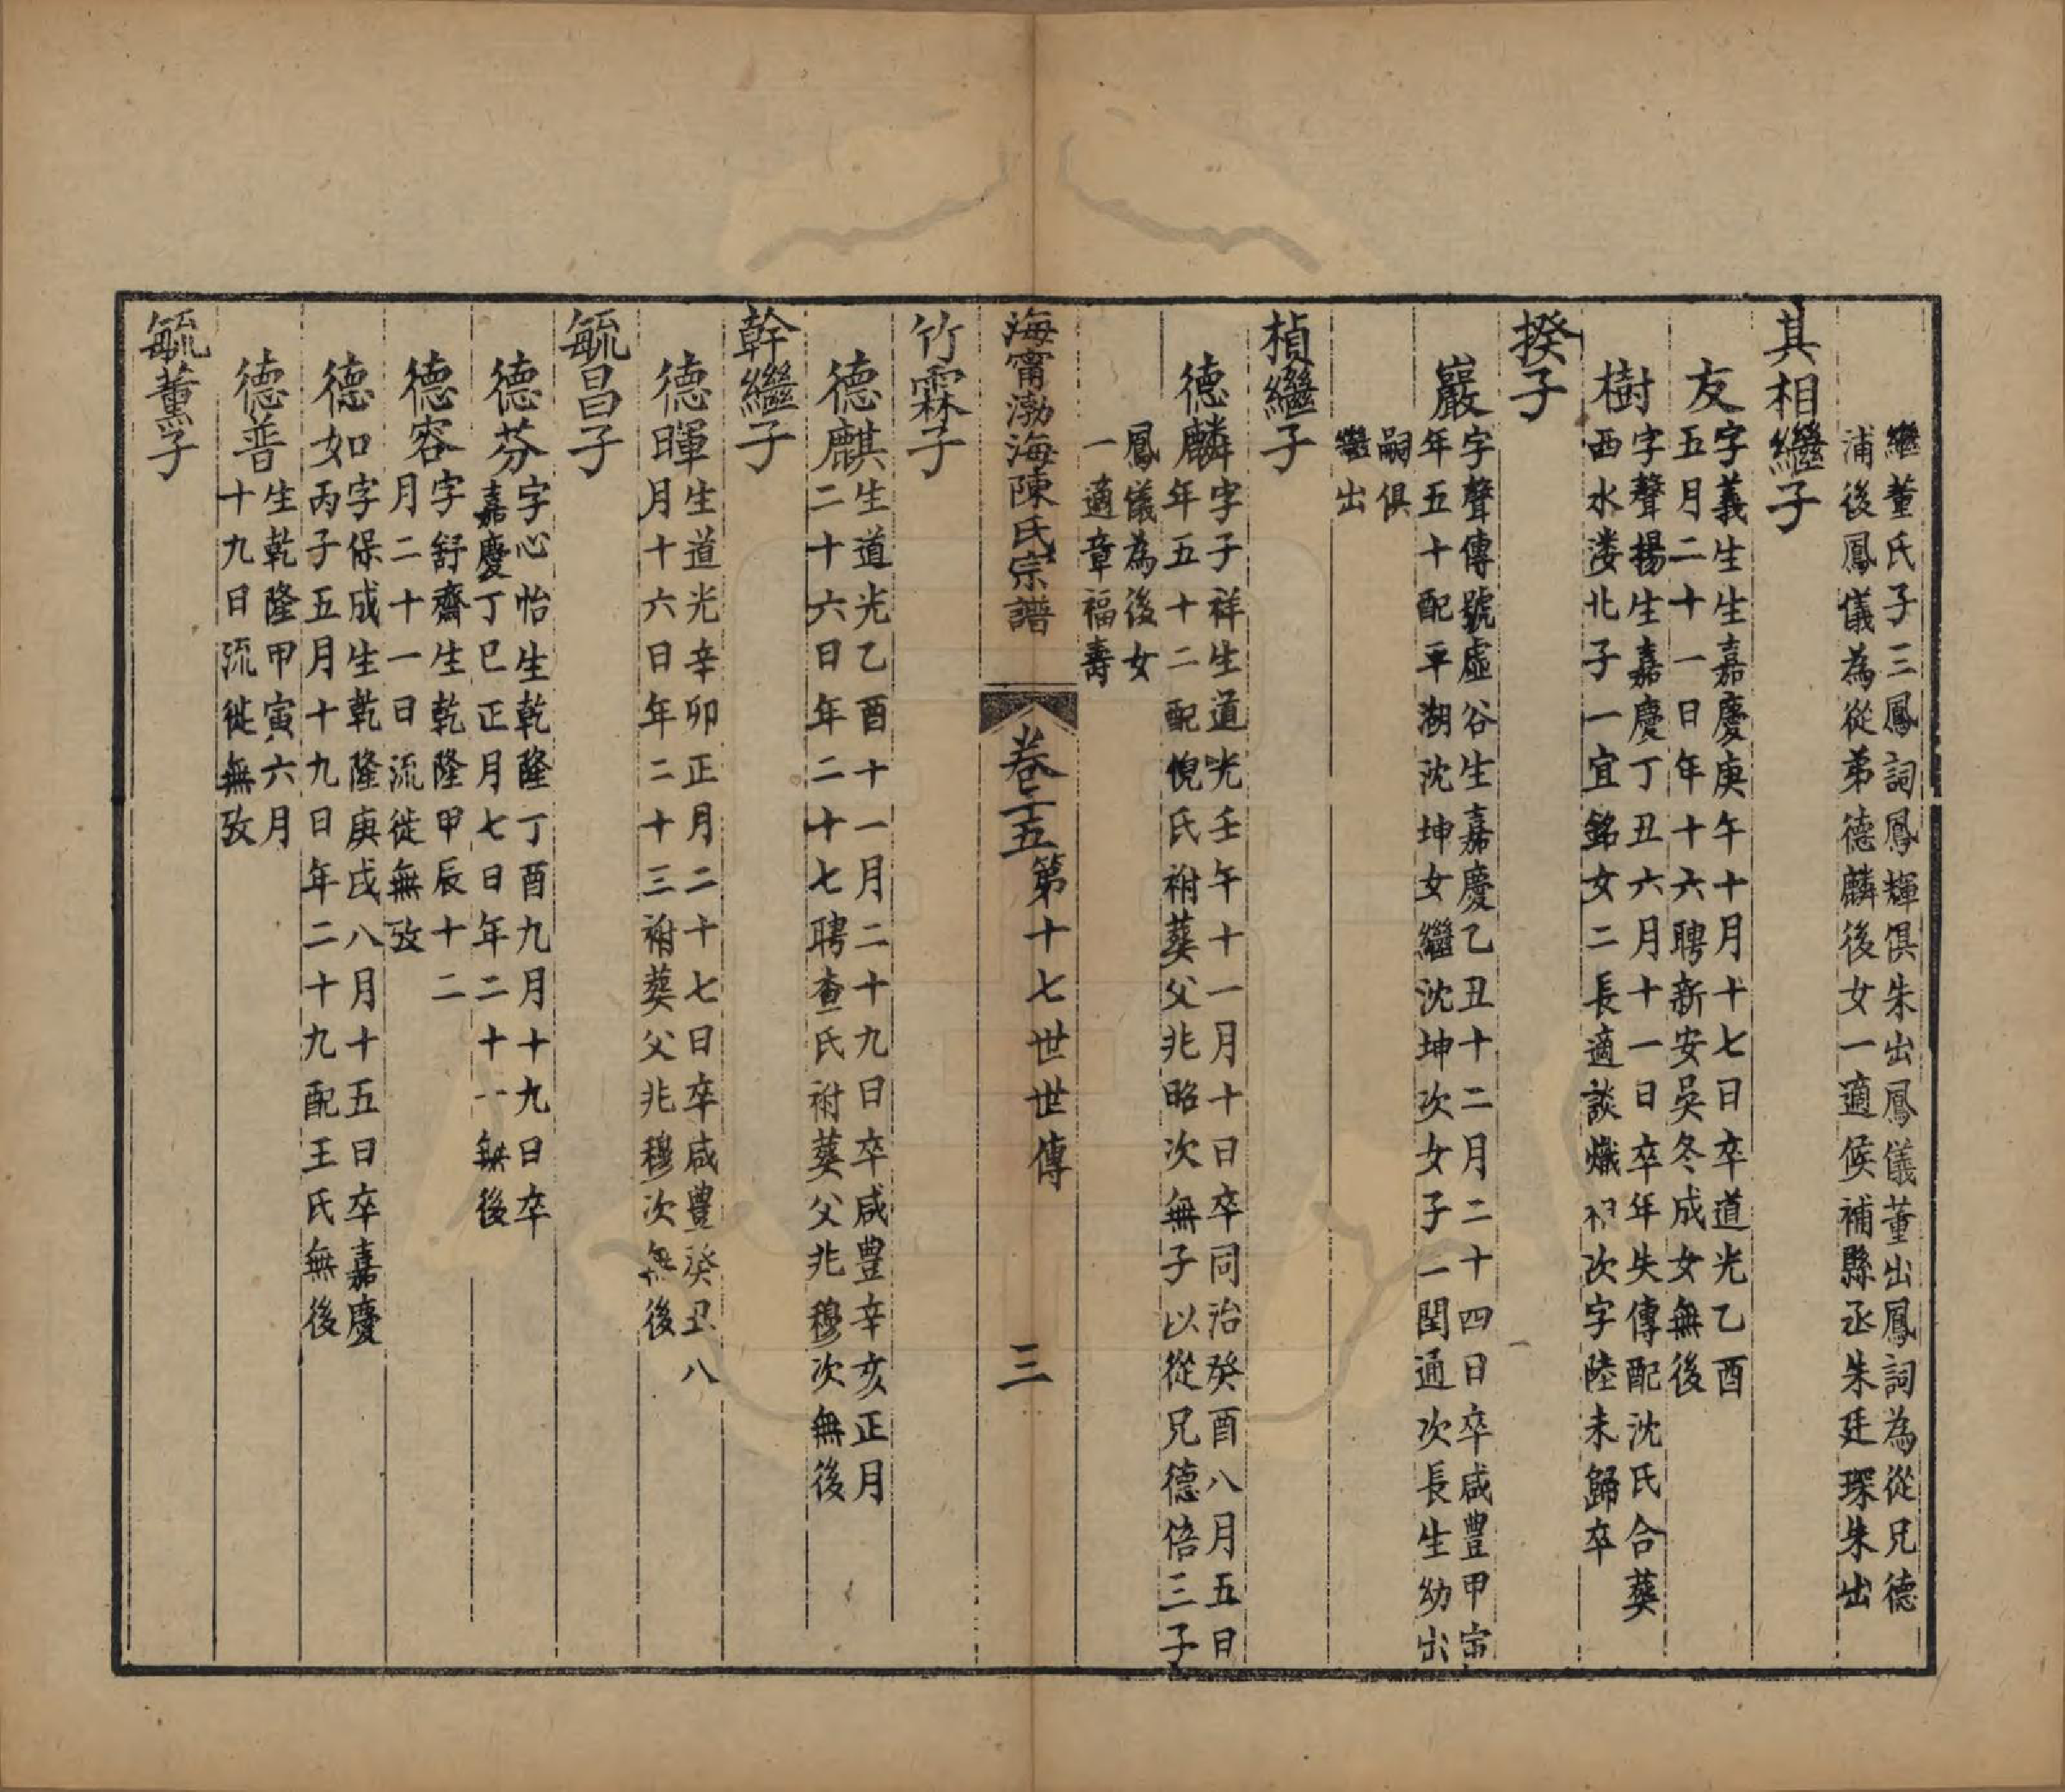 繼董氏子三鳳詞鳳輝俱朱出鳳儀董出鳳詞為從兄德
浦後鳳儀為從弟德麟後女一適候補縣丞朱廷琛朱出
其相繼子
友字義生生嘉慶庚午十月十七日卒道光乙酉
五月二十一日年十六聘新安吳冬成女無後
樹字聲揚生嘉慶丁丑六月十一日卒年失傳配沈氏合葬
西水淒北子一宜銘女二長適談熾次字陸未歸卒
揆子
巖字聲傳號虛谷生嘉慶乙丑十二月二十四日卒咸豐甲寅
年五十配平湖沈坤女繼沈坤次女子一閏通次長生幼出
嗣俱
繼出
楨繼子
德麟字子祥生道光壬午十一月十日卒同治癸酉八月五日
年五十二配倪氏祔葬父兆昭次無子以從兄德倍三子
鳳儀為後女
一適章福壽
海甯渤海陳氏宗譜 卷二十五 第十七世世傳 三
竹霖子
德麒生道光乙酉十一月二十九日卒咸豐辛亥正月
二十六日年二十七聘查氏祔葬父兆穆次無後
幹繼子
德暉生道光辛卯正月二十七日卒咸豐癸丑八
月十六日年二十三祔葬父兆穆次無後
毓昌子
德芬字心怡生乾隆丁酉九月十九日卒
嘉慶丁巳正月七日年二十一無後
德容字舒齋生乾隆甲辰十二
月二十一日流徙無攷
德如字保成生乾隆庚戌八月十五日卒嘉慶
丙子五月十九日年二十九配王氏無後
德普生乾隆甲寅六月
十九日流徙無攷
毓董子